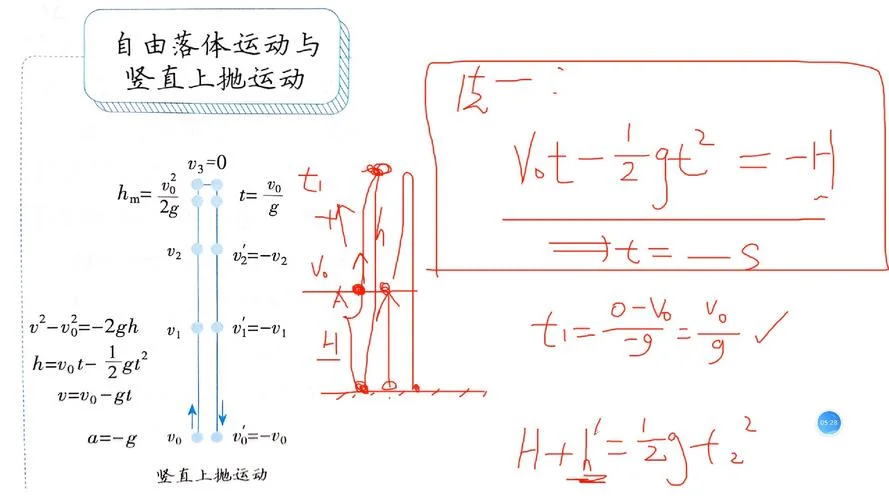 自由落体运动与
竖直上抛运动
v₃=0
hₘ= v₀²/2g
t= v₀/g
v₂
v₂′=−v₂
v²−v₀²=−2gh
v₁
v₁′=−v₁
h=v₀t− 1/2 gt²
v=v₀−gt
a=−g
v₀
v₀′=−v₀
竖直上抛运动
t₁
h
V₀
A
H
法一：
V₀t − 1/2 gt² = −H
⟹ t = — s
t₁ = 0−V₀/−g = V₀/g ✓
H + h′ = 1/2 g t₂²
05:28